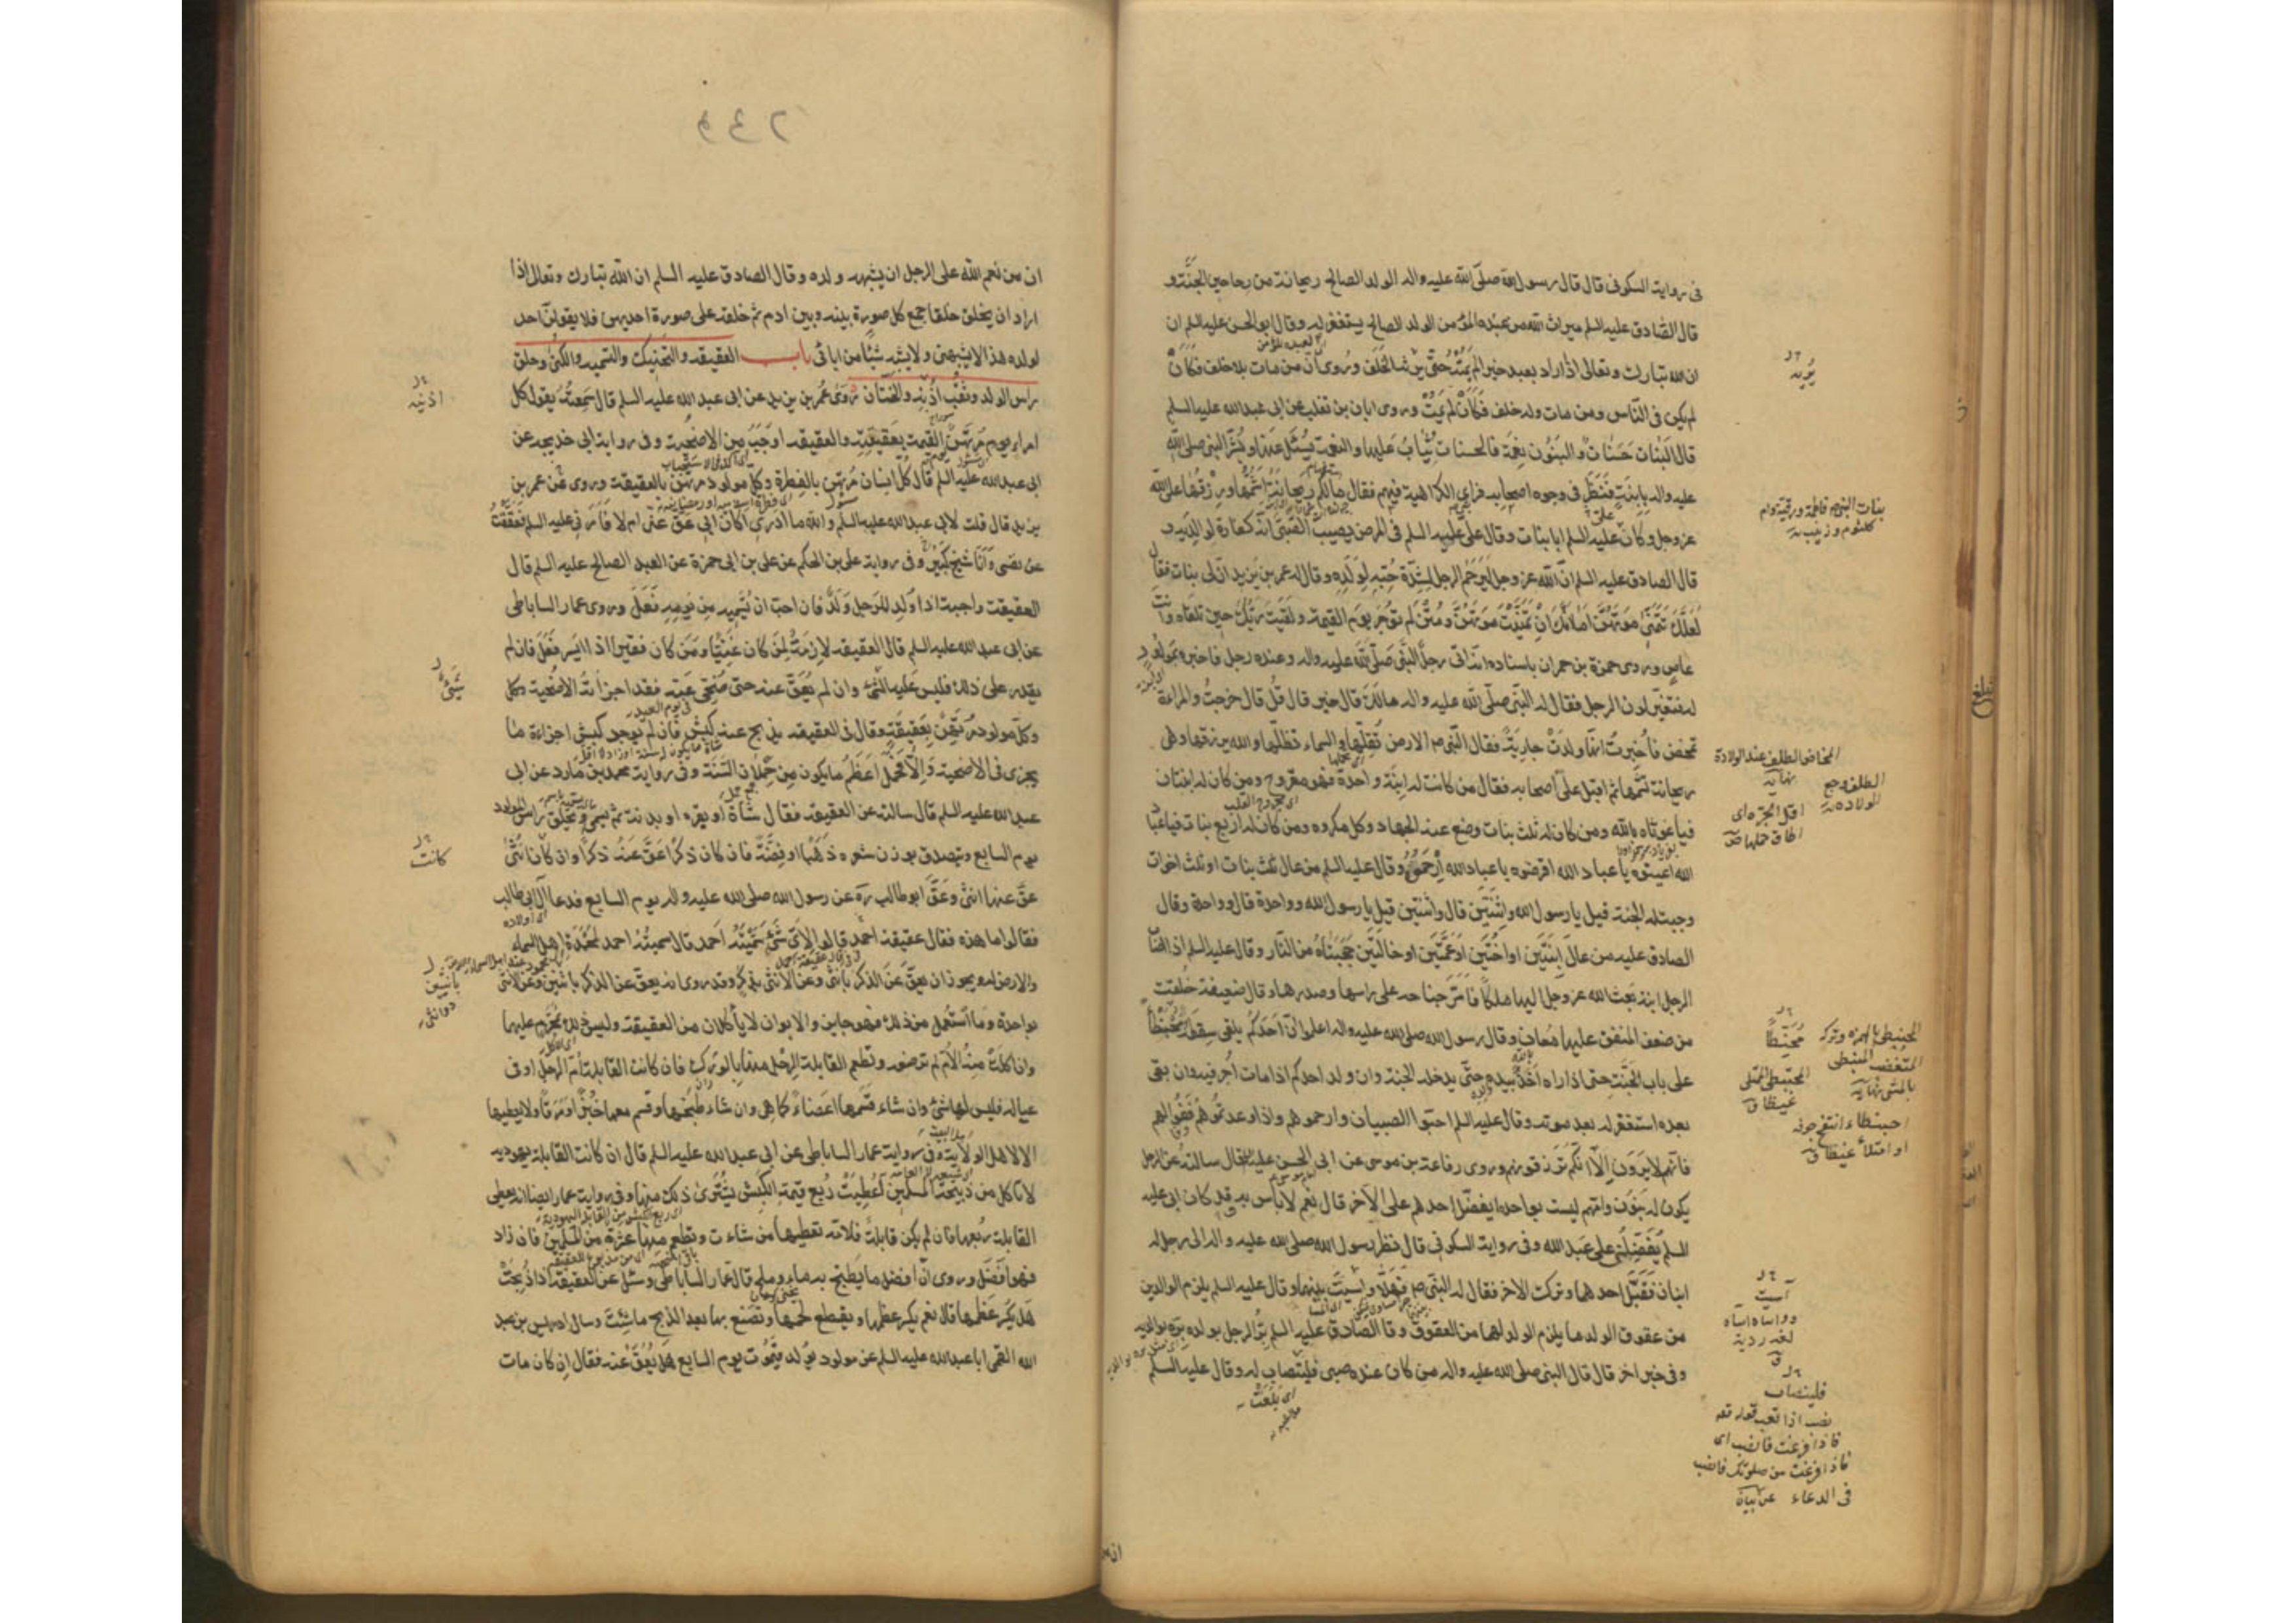 في رواية السكوني قال قال رسول الله صلّى الله عليه واله الولد الصالح ريحانة من رياحين الجنّة و
قال الصّادق عليه السلم ميراث الله من عبده المؤمن الولد الصالح يستغفر له وقال ابو الحسن عليه السلم ان
ان الله تبارك وتعالى اذا اراد بعبد خيرا لم يمته حتّى يريه الخلف وروي ان من مات بلا خلف فكأن
لم يكن في النّاس ومن مات وله خلف فكأن لم يمت وروى ابان بن تغلب عن ابي عبد الله عليه السلم
قال البنات حسنات والبنون نعمة فالحسنات يثاب عليها والنعمة يسئل عنها وبُشّر النبي صلى الله
عليه واله بابنة فنظر في وجوه اصحابه فراى الكراهية فيهم فقال ما لكم ريحانة اشمّها ورزقها على الله
عز وجل وكان عليه السلم ابا بنات وقال علي عليه السلم في المرض يصيب الصّبي انه كفارة لوالديه و
قال الصادق عليه السلم انّ الله عز وجل ليرحم الرجل لشدّة حبّه لولده وقال له عمر بن يزيد انّ لي بنات فقال
لعلّك تتمنّى موتهنّ اما انّك ان تمنّيت موتهنّ ومتن لم توجر يوم القيمة ولقيت ربّك حين تلقاه وانت
عاص وروى حمزة بن حمران باسناده انه اتى رجل النّبي صلّى الله عليه واله وعنده رجل فاخبره بمولود
له فتغيّر لون الرجل فقال له النّبي صلّى الله عليه واله مالك قال خير قال قُل قال خرجت والمراة
تمخض فاُخبرت انّها ولدت جارية فقال النّبي ص الارض تقلّها والسماء تظلّها والله يرزقها وهي
ريحانة تشمّها ثم اقبل على اصحابه فقال من كانت له ابنة واحدة فهو مقروح ومن كان له ابنتان
فيا غوثاه بالله ومن كان له ثلث بنات وضع عنه الجهاد وكل مكروه ومن كان له اربع بنات فيا عباد
الله اعينوه يا عباد الله اقرضوه يا عباد الله ارحموه وقال عليه السلم من عال ثلث بنات او ثلث اخوات
وجبت له الجنة قيل يا رسول الله واثنتين قال واثنتين قيل يا رسول الله وواحدة قال وواحدة وقال
الصادق عليه من عال ابنتين او اختين او عمّتين او خالتين حجبتاه من النّار وقال عليه السلم اذا اصاب
الرجل ابنة بعث الله عز وجل اليها ملكًا فامرّ جناحه على راسها وصدرها وقال ضعيفة خلقت
من ضعف المنفق عليها معان وقال رسول الله صلى الله عليه واله اعلموا انّ احدكم يلقى سقطه محبنطئًا
على باب الجنّة حتى اذا راه اخذ بيده حتّى يدخله الجنة وان ولد احدكم اذا مات اُجر فيه وان بقى
بعده استغفر له بعد موته وقال عليه السلم احبّوا الصبيان وارحموهم واذا وعدتموهم ففوا لهم
فانّهم لا يرون الّا انّكم ترزقونهم وروى رفاعة بن موسى عن ابي الحسن عليه قال سالته عن الرجل
يكون له بنون وامّهم ليست بواحدة ايفضّل احدهم على الاخر قال نعم لا باس به قد كان ابي عليه
السلم يفضّلني على عبد الله وفي رواية السكوني قال نظر رسول الله صلى الله عليه واله الى رجل له
ابنان فقبّل احدهما وترك الاخر فقال له النبي ص فهلّا واسيت بينهما وقال عليه السلم يلزم الوالدين
من عقوق الولد ما يلزم الولد لهما من العقوق وقال الصّادق عليه السلم برّ الرجل بولده برّه بوالديه
وفي خبر اخر قال قال النبي صلى الله عليه واله من كان عنده صبي فليتصاب له وقال عليه السلم
يُريه
بنات النبي ص فاطمة ورقية وام
كلثوم وزينب
المخاض الطلق عند الولادة
نهاية
الطلق وجع
الولادة
اقل الجرّة اى
اطاق حملها ص
محبنطًا
المحبنطي بالهمزة وتركه
المتغضب المستبطي
نهاية
المحبنطي الممتلي
غيظا ق
احبنطاء انتفخ جوفه
او امتلأ غيظا ق
آسيت
وواساه آساه
لغة ردية
ق
فلينصاب
نصب اذا تعب قوله تعه
فاذا فرغت فانصب اى
فاذا فرغت من صلوتك فانصب
في الدعاء
ان من نعم الله على الرجل ان يشبهه ولده وقال الصادق عليه السلم ان الله تبارك وتعالى اذا
اراد ان يخلق خلقا جمع كل صورة بينه وبين ادم ثم خلقه على صورة احديهن فلا يقولنّ احد
لولده هذا لا يشبهني ولا يشبه شيئا من ابائي باب العقيقه والتحنيك والتسمية والكنى وحلق
راس الولد وثقب اذنيه والختان روى عُمر بن يزيد عن ابي عبد الله عليه السلم قال سمعته يقول كل
امرء يوم القيمة مرتهن بعقيقته والعقيقه اوجب من الاضحية وفي رواية ابي خديجه عن
ابي عبد الله عليه السلم قال كل انسان مرتهن بالفطرة وكل مولود مرتهن بالعقيقة وروي عن عمر بن
يزيد قال قلت لابي عبد الله عليه السلم والله ما ادري اكان ابي عقّ عنّي ام لا فامرني عليه السلم فعققت
عن نفسي وانا شيخ كبير وفي رواية علي بن الحكم عن علي بن ابي حمزة عن العبد الصالح عليه السلم قال
العقيقة واجبة اذا وُلد للرجل ولد فان احبّ ان يُسمّيه من يومه فعل وروى عمار الساباطي
عن ابي عبد الله عليه السلم قال العقيقه لازمة لمن كان غنيّا ومن كان فقيرا اذا ايسر فعل فان لم
يقدر على ذلك فليس عليه شيء وان لم يعقّ عنه حتى ضُحّي عنه فقد اجزأته الاضحية وكل
وكل مولود مرتهن بعقيقته وقال في العقيقه يذبح عنه كبش فان لم يوجد كبش اجزاه ما
يجزي في الاضحية والّا فحمل اعظم ما يكون من حملان السّنة وفي رواية محمد بن مارد عن ابي
عبد الله عليه السلم قال سالته عن العقيقه فقال شاة او بقره او بدنة ثم يسمّي ويحلق راس المولود
يوم السابع ويتصدق بوزن شعره ذهبا او فضّة فان كان ذكرًا عقّ عنه ذكرًا وان كان انثى
عقّ عنها انثى وعقّ ابو طالب ره عن رسول الله صلى الله عليه واله يوم السابع فدعا آل ابي طالب
فقالوا ما هذه فقال عقيقة احمد قالوا لايّ شيء سمّيته احمد قال سميته احمد لمحمدة اهل السماء
والارض له ويجوز ان يعق عن الذكر بانثى وعن الانثى بذكر وقد روي انه يعق عن الذكر باثنين وعن الانثى
بواحدة وما استعمل من ذلك فهو جايز والابوان لا يأكلان من العقيقة وليس ذلك بمحرّم عليهما
وان اكلت منه الام لم ترضعه وتطعم القابلة الرجل منها بالورك فان كانت القابلة امّ الرجل او في
عياله فليس لها شيء وان شاء قسّمها اعضاء كما هي وان شاء طبخها وقسم معها خبزا ومرقا ولا يعطيها
الا لاهل الولاية وفي رواية عمار الساباطي عن ابي عبد الله عليه السلم قال ان كانت القابلة يهودية
لا تاكل من ذبيحة المسلمين اُعطيت ربع قيمة الكبش يشترى ذلك منها وفي رواية عمار ايضا انه يعطى
القابلة ربعها فان لم يكن قابلة فلامّه تعطيها من شاءت وتطعم منها عشرة من المسلمين فان زاد
فهو افضل وروي انّ افضل ما يطبخ به ماء وملح قال عمار الساباطي وسئل عن العقيقة اذا ذُبحت
هل يكسر عظمها قال نعم يكسر عظمها ويقطع لحمها وتصنع بها بعد الذبح ما شئت وسال ادريس بن عبد
الله القمي ابا عبد الله عليه السلم عن مولود يولد فيموت يوم السابع هل يُعقّ عنه فقال ان كان مات
اذنيه
شيء
كانت